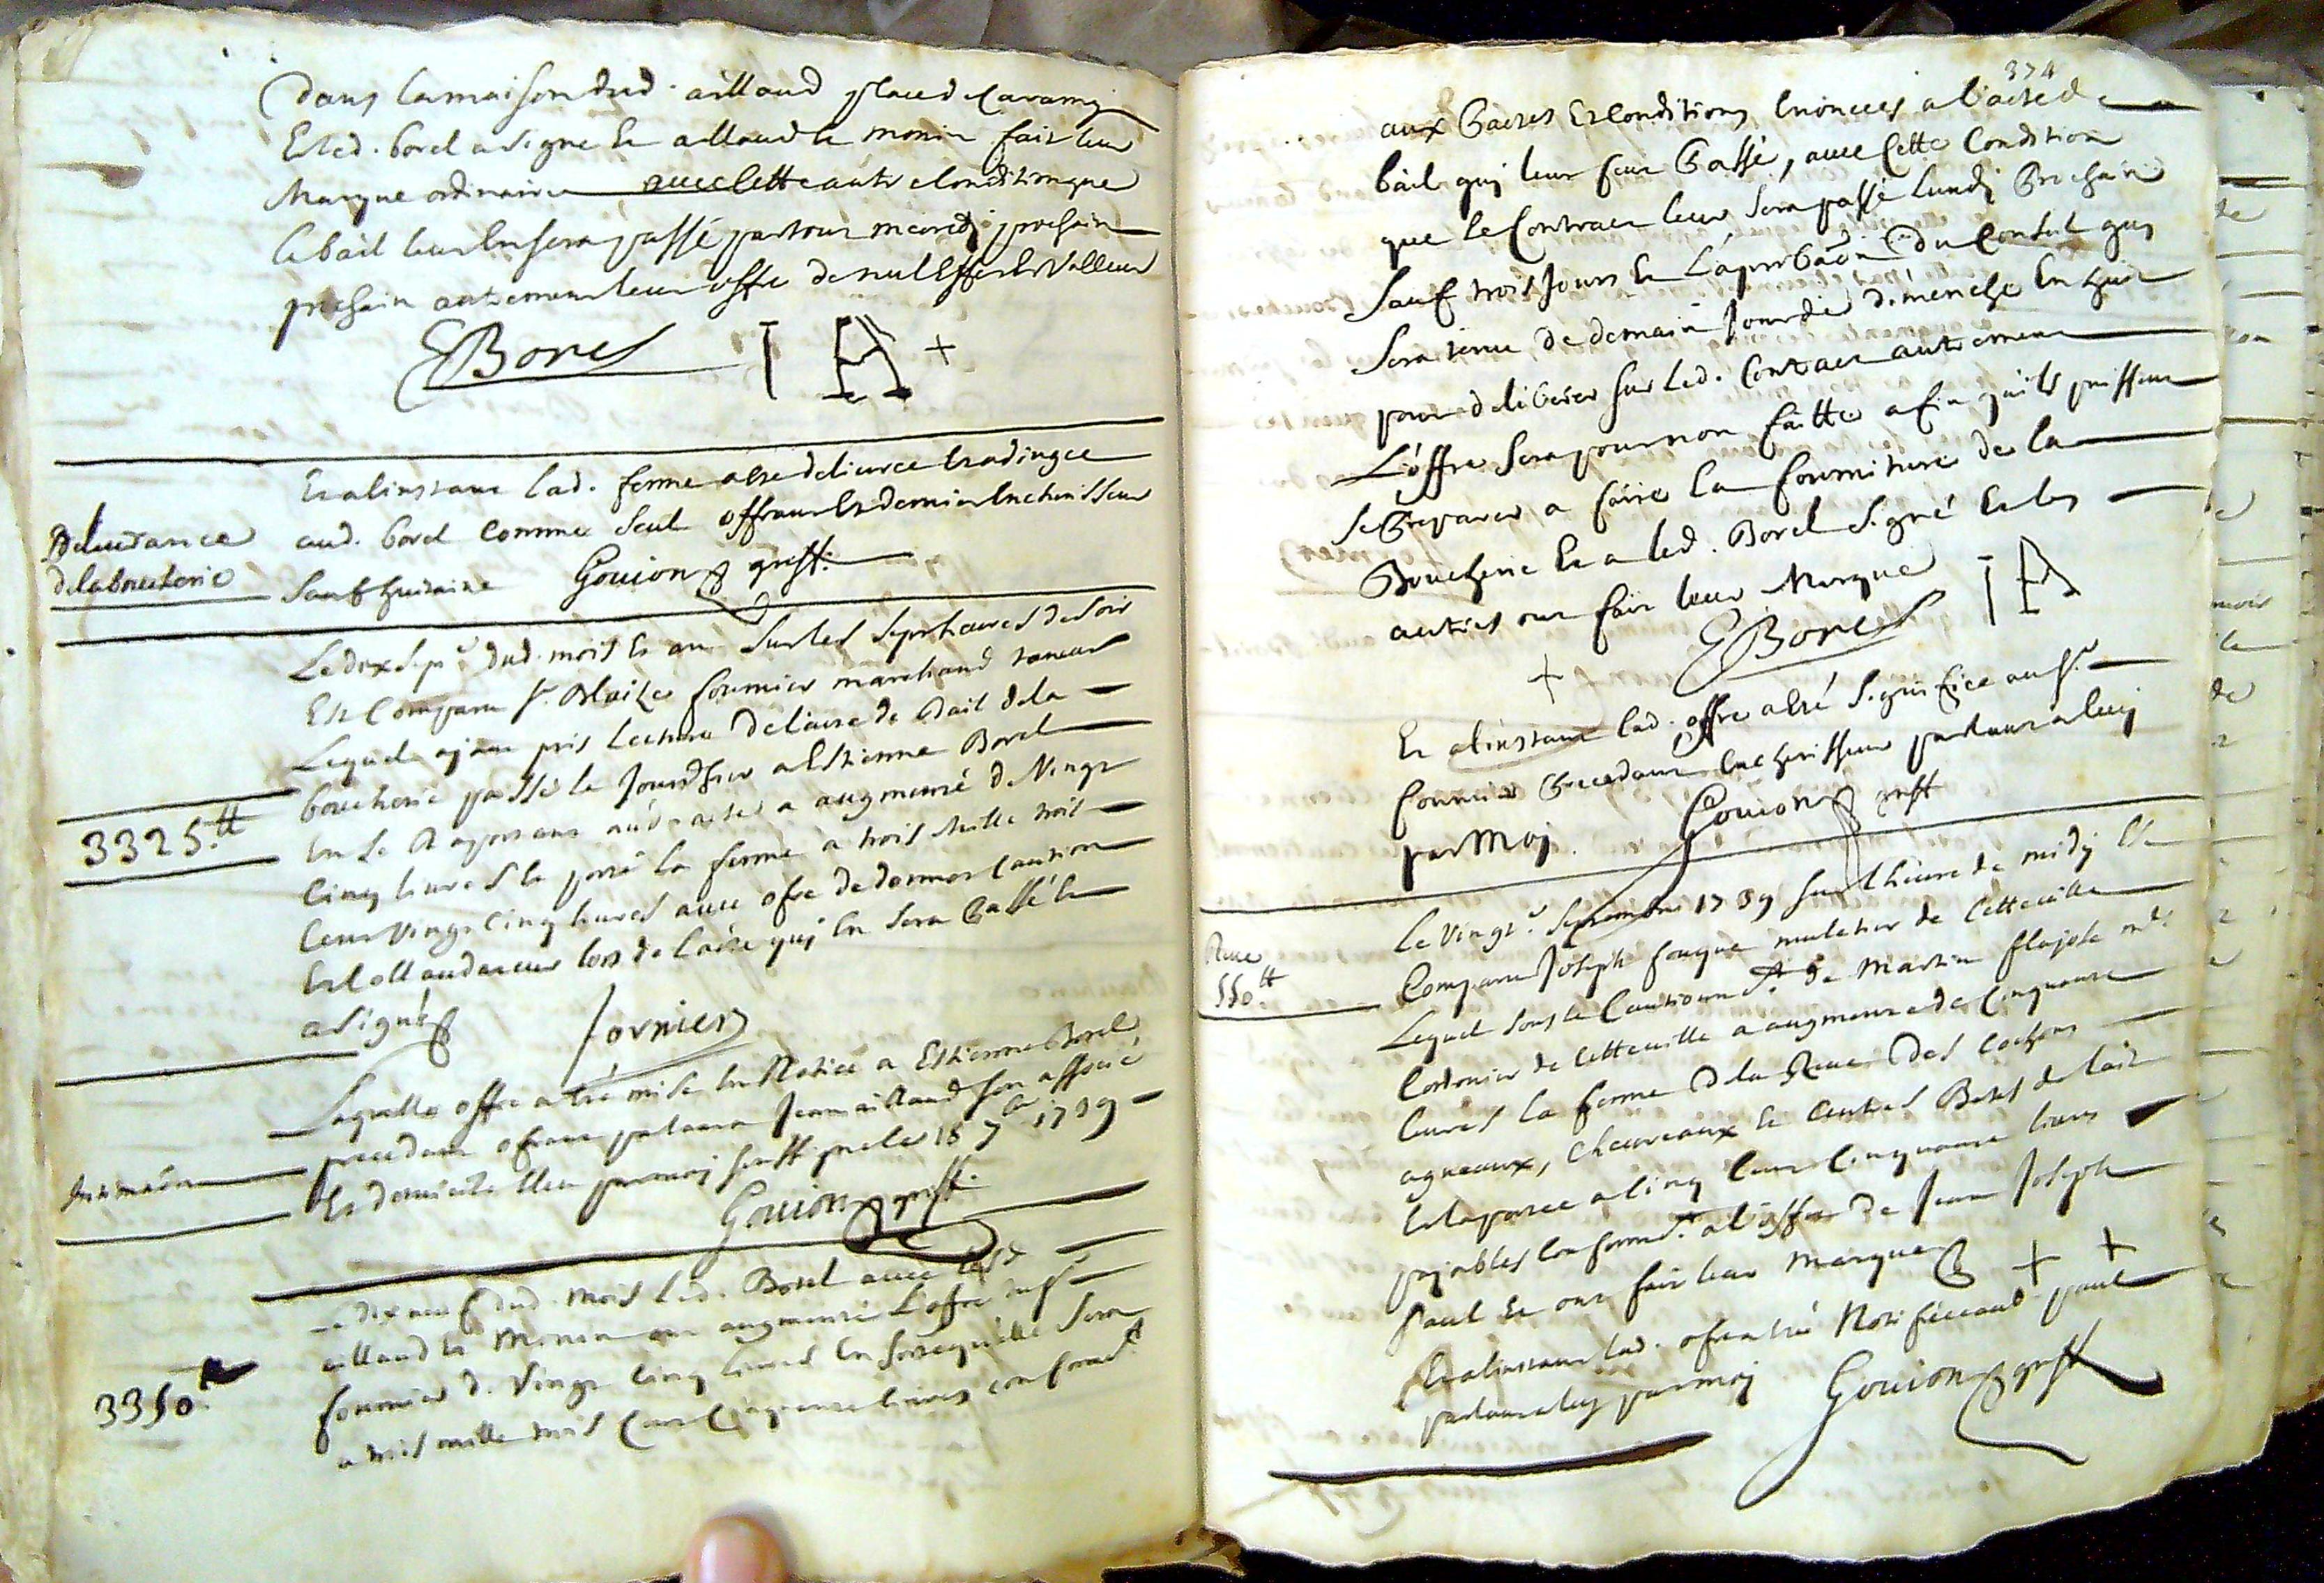 Dans la maison dud. aillaud place de Caramy
Et led. borel a signe Et aillaud et monin fait leur
Marque ordinaire avec cette autre condition que
le bail leur En sera passé par tout mercredi prochain
prochain autrement leur offre de nul Effet Et Valleur
EBorel IA +
Et alinstant lad. ferme a ete delivree Et adjugee
Delivrance
aud. borel Comme Seul offrant Et dernier Encherisseur
de la boucherie
Sauf huitaine Gouion greff.
Le dix sept.e dud. mois Et an Sur les Sept heures de soir
Est Comparu Sr. Blaize fournier marchand taneur
Lequel ayant pris Lecture de l'acte de Bail de la
boucherie passé le Jourdhier a Estienne Borel
3325.tt
En Se Raportant aud. acte a augmenté de Vingt
Cinq livres Et porté la ferme a trois Mille trois
Cent Vingt Cinq livres avec ofre de donner Caution
Et Collaudateur lors de lacte quj En sera Passé Et
a signé
fornier
Laquelle offre a été mise En Notice a Estienne Borel
precedant ofrant parlant a Jean aillaud son associé
Intimaôn
Et domicille Eleu par moj greff. ce 18 7bre 1739
Gouion greff.
Le dix neuf dud. mois Led. Borel avec lesd.
aillaud Et Monin ont augmenté L'ofre du Sr
fournier de Vingt Cinq livres En sorte quelle Sera
3350.tt
a trois mille trois Cent Cinquante livres conformt.
374
aux Pactes Et Conditions Enoncees a l'acte de
bail quj leur feut Passé, avec Cette Condition
que le Contract leur Sera passé Lundj Prochain
Sauf trois Jours Et L'aprobaôn Du Conseil quy
Sera tenu de demain Jour de dimenche En huit
pour deliberer sur led. Contract autrement
L'offre Sera pour non faitte afin quils puissent
se Preparer a faire la fourniture de la
Boucherie Et a led. Borel Signé Et les
autres ont fait leur Marque
+ EBorel IA
Et alinstant lad. offre a été Signifiée au Sr.
fournier Precedant Encherisseur parlant a luy
par Moj. Gouion greff
Le Vingt.e Septembre 1739 sur l'heure de midy Est
Reve
Comparu Joseph fouque muletier de Cette ville
550.tt
Lequel Sous le Cautionnt. de Martin flajole md.
Cordonier de Cette ville a augmenté de Cinquante
livres la ferme de la Reve Des Cochons
agneaux, Chevreaux Et autres Betes de lait
Et la portee a Cinq Cent Cinquante livres
payables Conformt. a l'offre de Jean Joseph
Paul Et ont fait leur Marque + +
Et alinstant lad. ofre a été Notifiée aud. paul
parlant a luy par moj Gouion greff